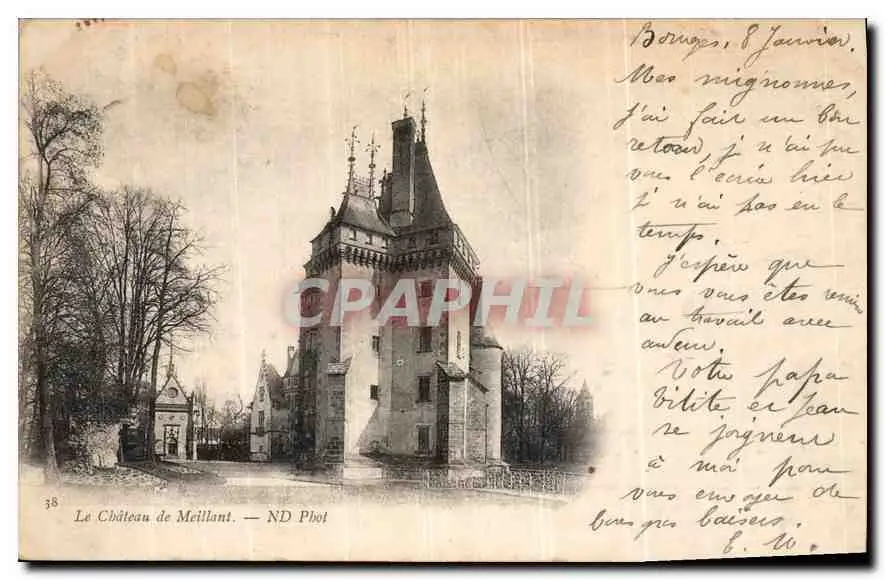 Bourges, 8 Janvier.
Mes mignonnes,
j'ai fait un bon
retour, je n'ai pu
vous l'écrire hier
je n'ai pas eu le
temps.
J'espère que
vous vous êtes remises
au travail avec
ardeur.
Votre papa
et Jean
se joignent
à moi pour
vous envoyer de
bons gros baisers.
E. W.
CPAPHIL
38
Le Château de Meillant. — ND Phot